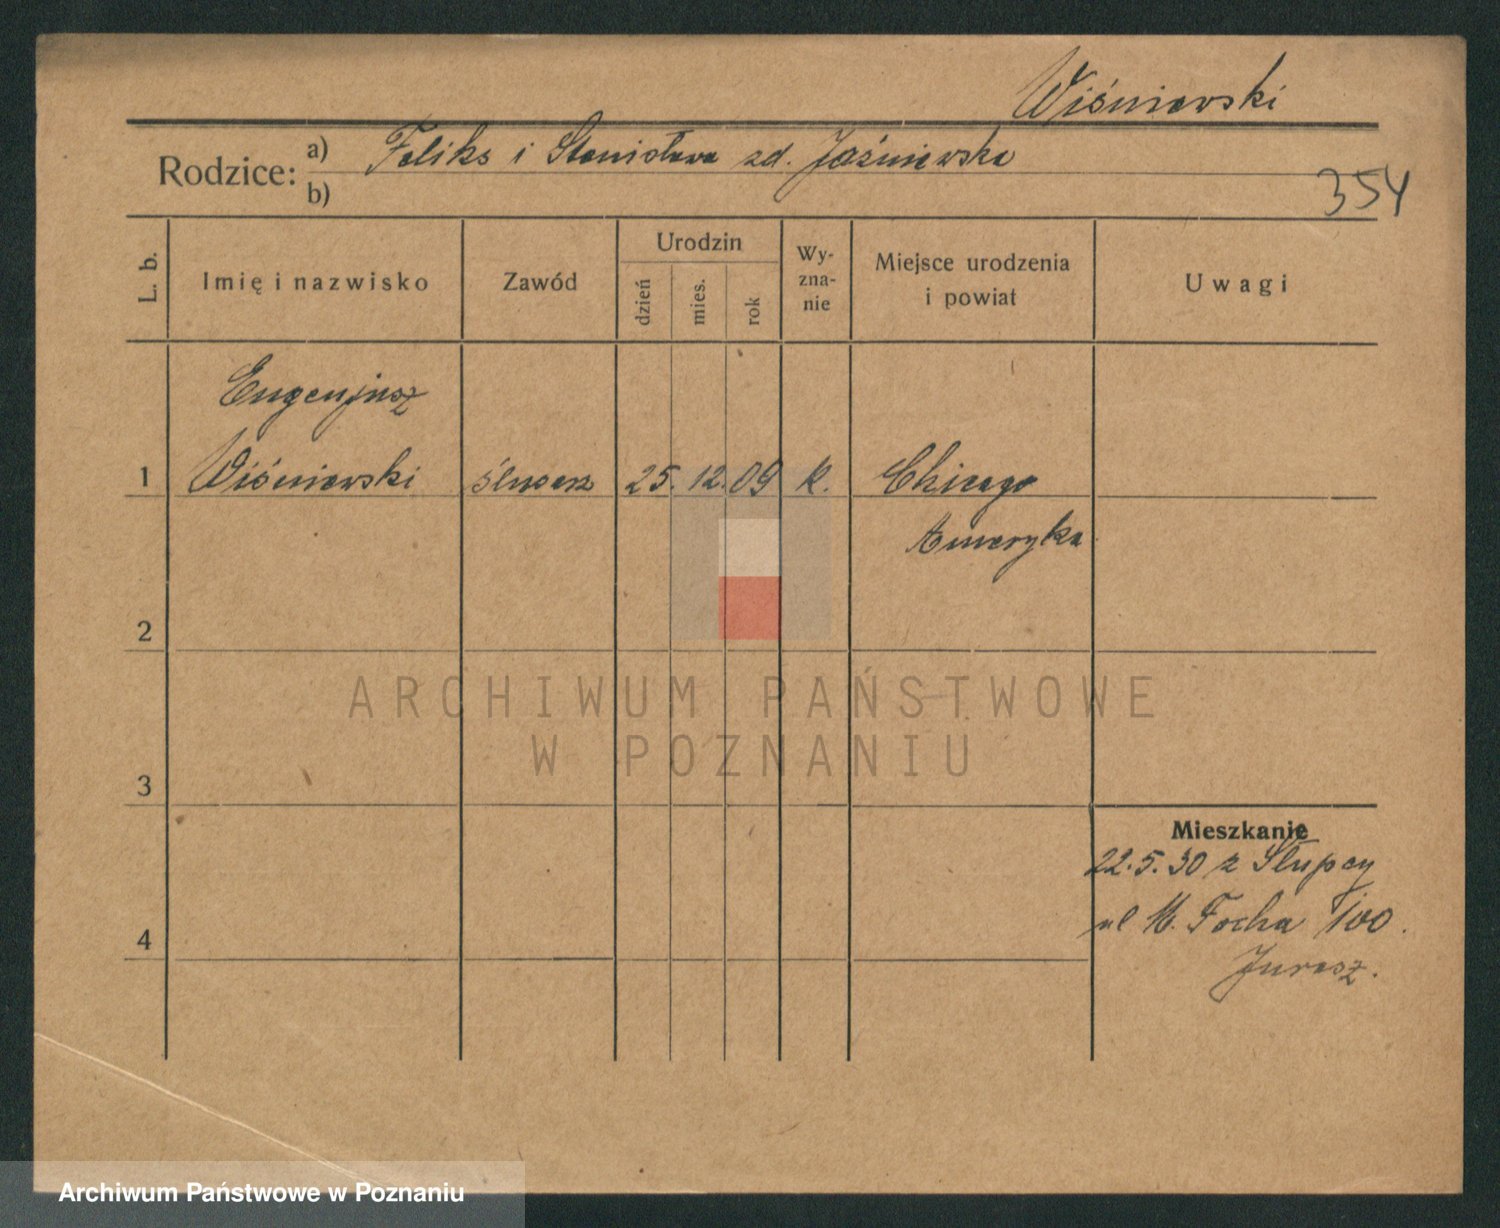 Wiśniewski
Rodzice: a) Feliks i Stanisława zd. Jaśniewska
b)
354
L. b.
Imię i nazwisko
Zawód
Urodzin
dzień
mies.
rok
Wy-
zna-
nie
Miejsce urodzenia
i powiat
Uwagi
Eugenjusz
1 Wiśniewski ślusarz 25. 12. 09 k. Chicago
Ameryka
2
ARCHIWUM PAŃSTWOWE
W POZNANIU
3
Mieszkanie
22.5.30 z Słupcy
ul M. Focha 100.
4
Jurasz.
Archiwum Państwowe w Poznaniu